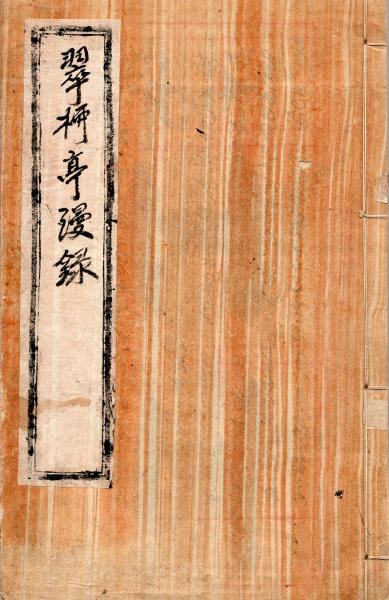 翠柳亭漫録